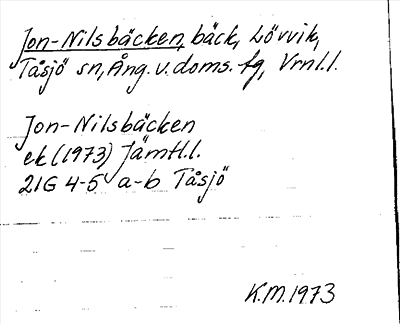 Jon-Nilsbäcken, bäck, Lövvik,
Tåsjö sn, Ång. v. doms. fg, Vrnl.l.
Jon-Nilsbäcken
ek (1973) Jämtl.l.
21G 4-5 a-b Tåsjö
K.M. 1973